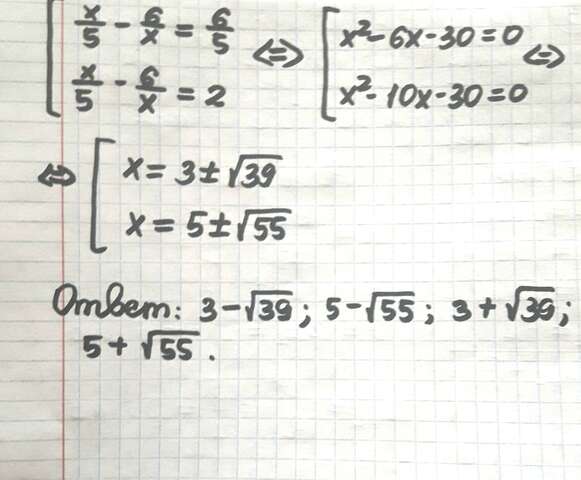 [ x/5 - 6/x = 6/5 ⇔ [ x² - 6x - 30 = 0 ⇔
x/5 - 6/x = 2 x² - 10x - 30 = 0
⇔ [ x = 3 ± √39
x = 5 ± √55
Ответ: 3 - √39; 5 - √55; 3 + √39;
5 + √55.